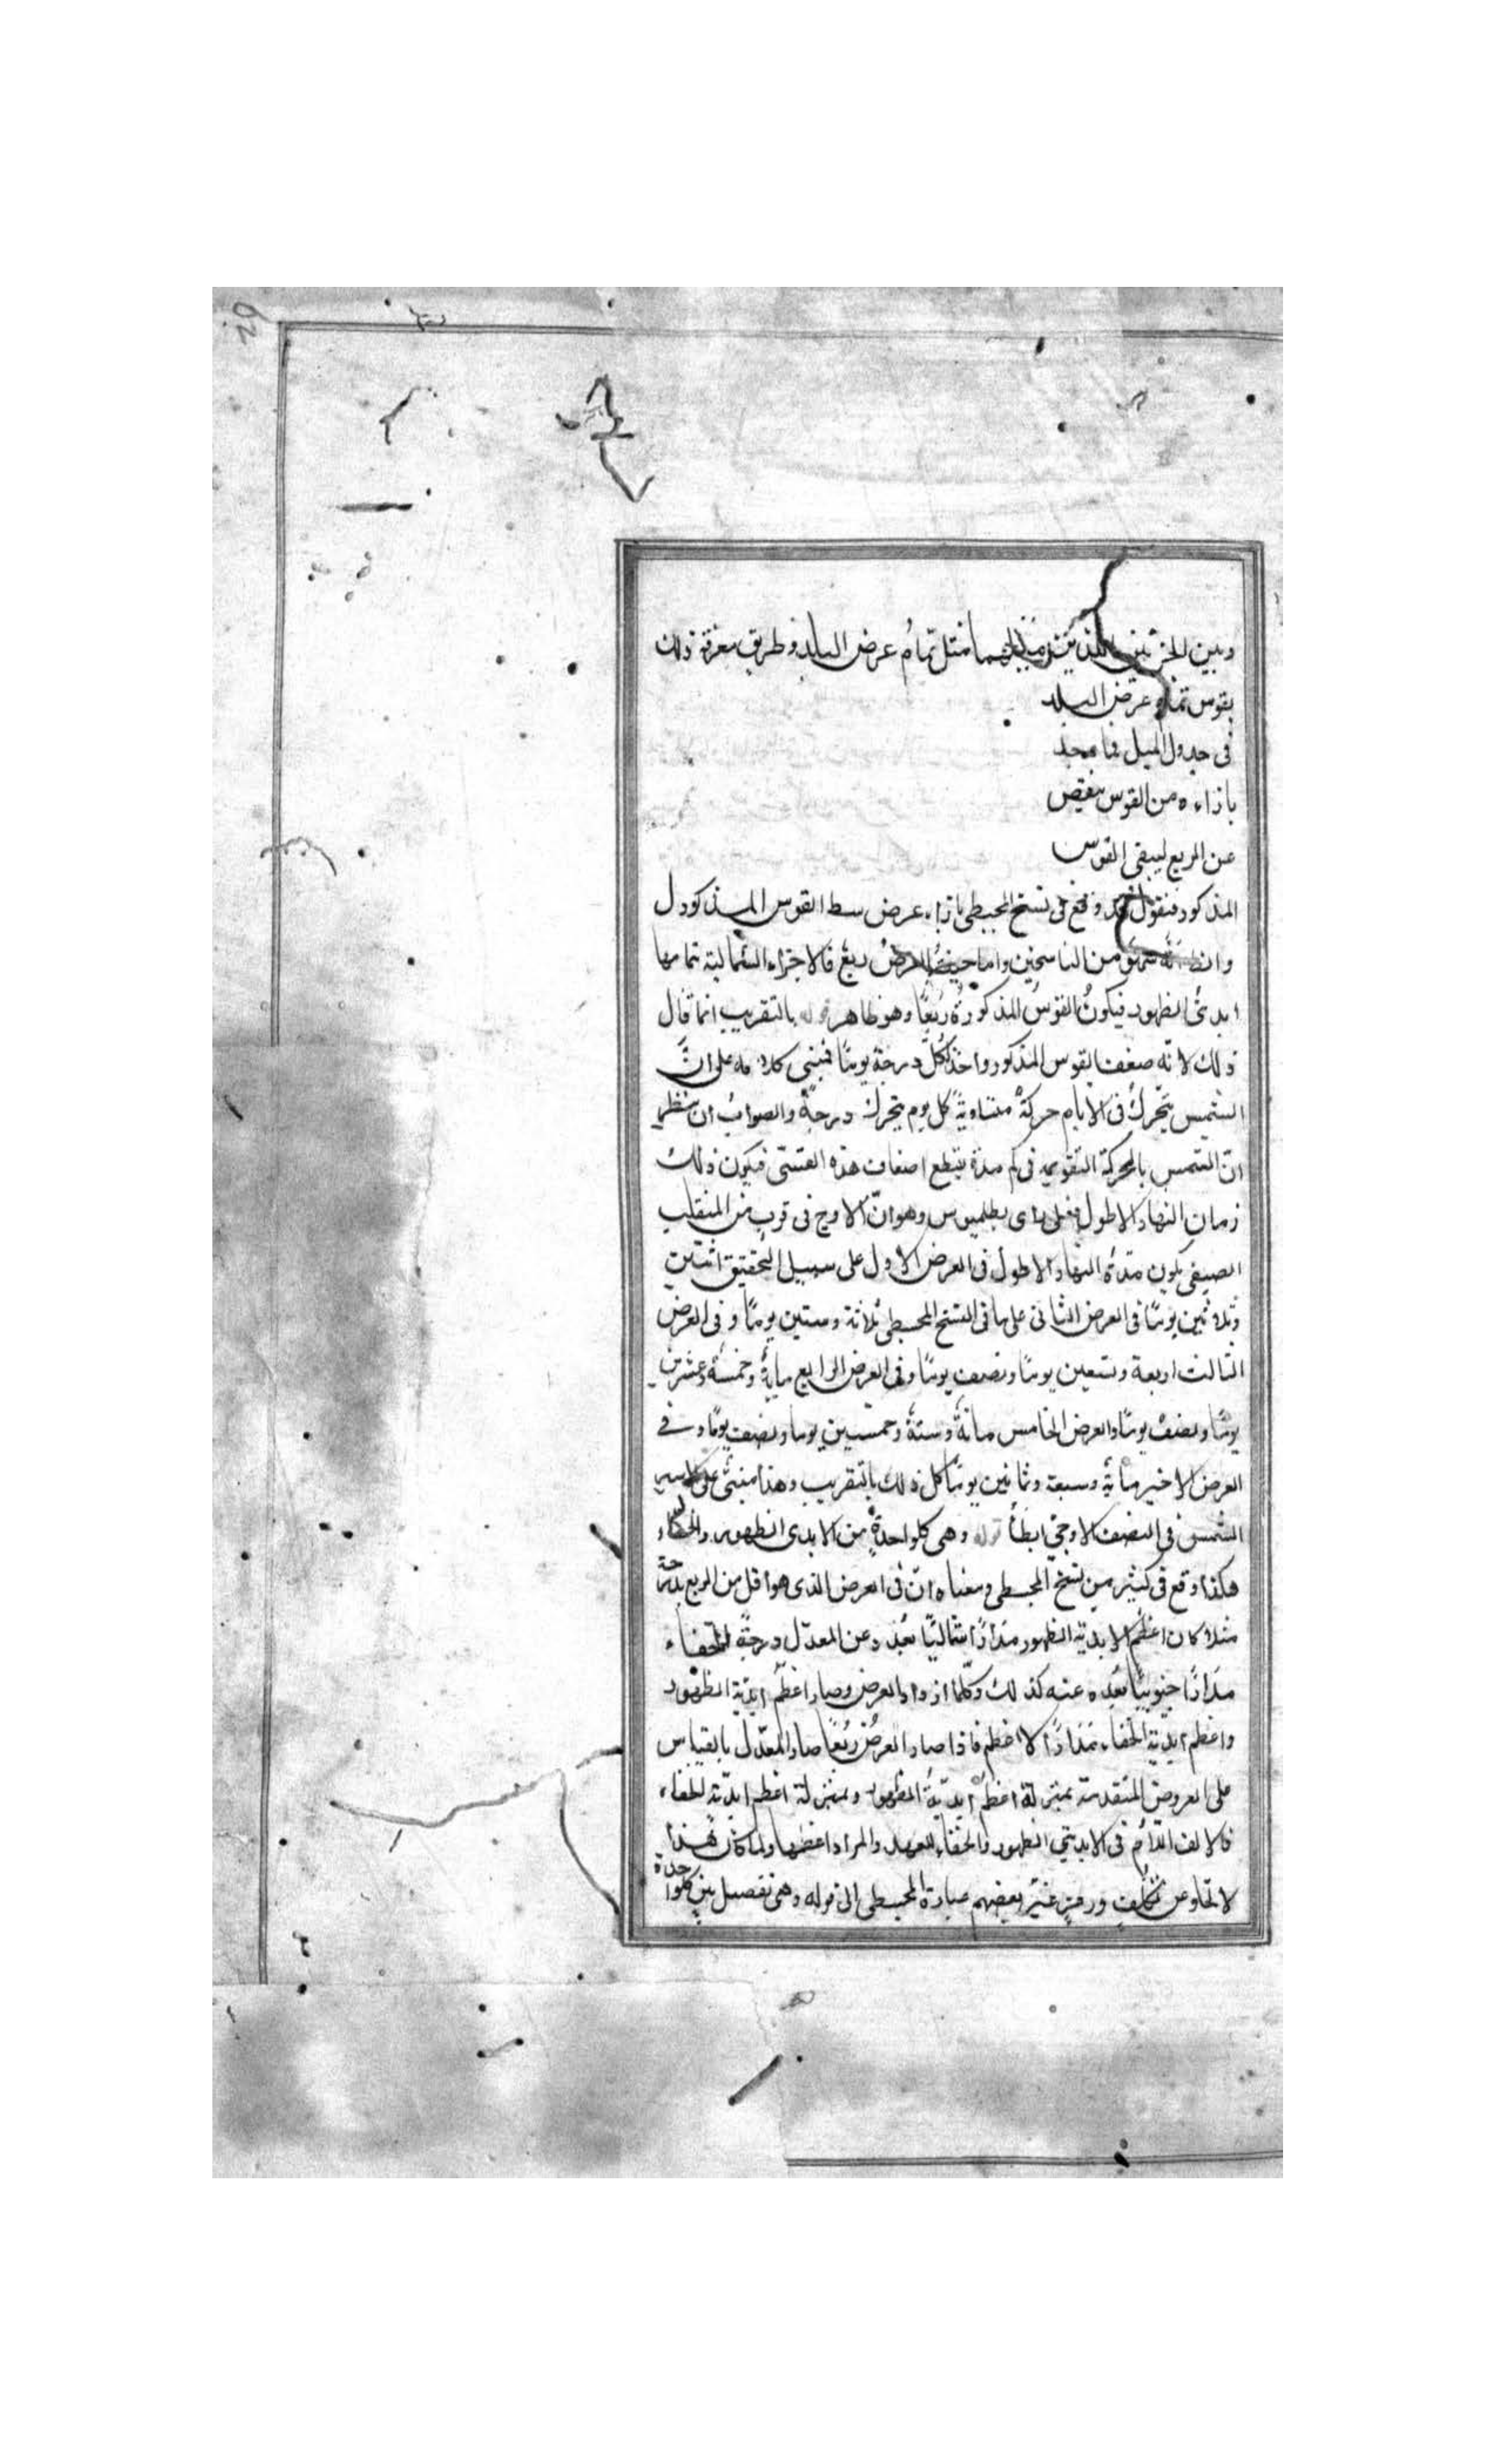 وبين الجزئين اللذين ميلهما مثل تمام عرض البلد وطريق معرفة ذلك
بقوس تمام عرض البلد
فى جدول الميل فما نجد
بازاءه من القوس ننقص
عن الربع ليبقى القوس
المذكور فنقول قد وقع فى نسخ المجسطى بازاء عرض سط القوس المذكور ل
وانظنه سهو من الناسخين واما حيث العرض ربع فالاجزاء الشمالية تمامها
ابدىّ الظهور فيكون القوس المذكورة ربعًا وهو ظاهر قوله بالتقريب انما قال
ذلك لانّه ضعف القوس المذكور واخذ لكل درجة يومًا فبنى كلامه على انّ
الشمس يتحرك فى الايام حركة متساوية كل يوم يتحرك درجة والصواب ان ننظر
انّ الشمس بالحركة التقويمية فى كم مدة يقطع اضعاف هذه القسى فيكون ذلك
زمان النهار الاطول فعلى راى بطلميوس وهو انّ الاوج فى قرب من المنقلب
الصيفى يكون مدة النهار الاطول فى العرض الاول على سبيل التحقيق اثنين
وثلاثين يومًا فى العرض الثانى على ما فى النسخ المجسطى ثلاثة وستين يومًا وفى العرض
الثالث اربعة وتسعين يومًا ونصف يومًا وفى العرض الرابع ماية وخمسة وعشرين
يومًا ونصف يومًا والعرض الخامس مائة وستة وخمسين يوما ونصف يومًا وفى
العرض الاخير مائة وسبعة وثمانين يومًا كل ذلك بالتقريب وهذا مبنىّ على ان سير
الشمس فى النصف الاوجىّ ابطأ قوله وهى كلواحدةٍ من الابدى الظهور والخفاء
هكذا وقع فى كثير من نسخ المجسطى ومعناه انّ فى العرض الذى هو اقل من الربع بدرجة
مثلا كان اعظم الابدية الظهور مدارًا شماليًا بعده عن المعدّل درجة والخفاء
مدارًا جنوبيًا بعده عنه كذلك وكلّما ازداد العرض وصار اعظم ابدية الظهور
واعظم ابدية الخفاء مدارًا اعظم فاذا صار العرض ربعًا صار المعدّل بالقياس
على العروض المتقدمة بمنزلة اعظم ابدية الظهور وبمنزلة اعظم ابدية الخفاء
فالالف اللام فى الابديتى الظهور والخفاء للعهد والمراد اعظمها ولما كان هذا
لا تخلو عن تكلّف غيّر بعضهم عبارة المجسطى الى قوله وهى تفصل بين كلواحدة